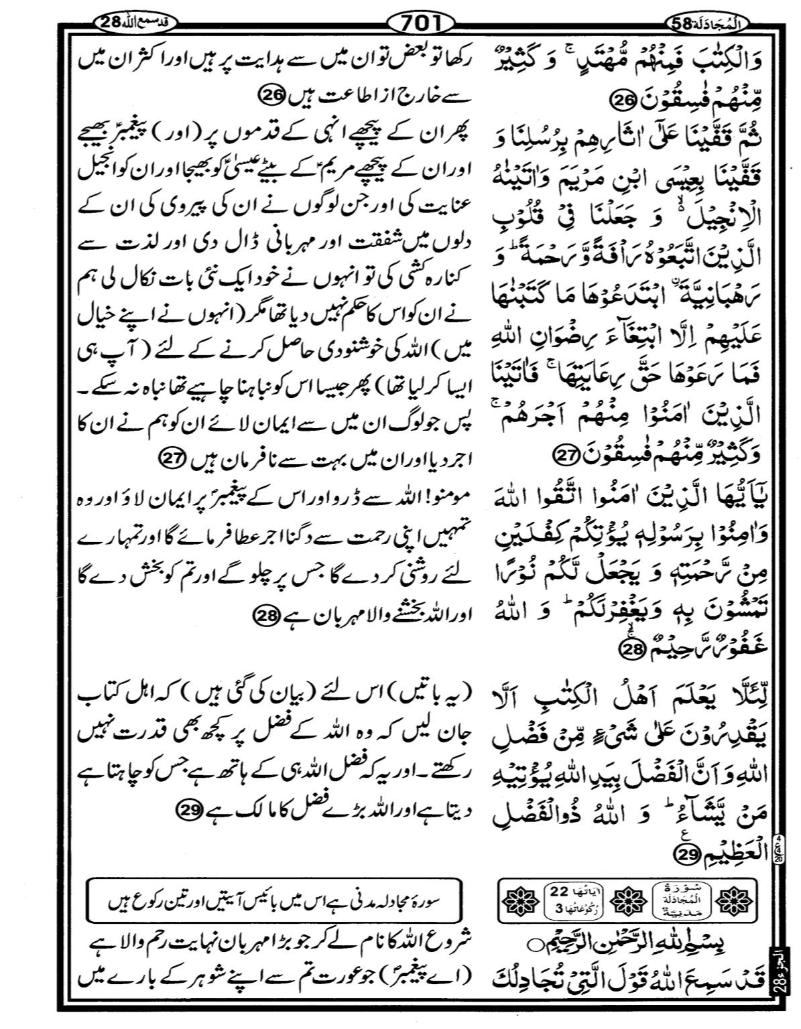 اَلْمُجَادَلَة 58
701
قد سمع اللہ 28
وَالْكِتٰبَ فَمِنْهُمْ مُّهْتَدٍ ۚ وَ كَثِيْرٌ
مِّنْهُمْ فٰسِقُوْنَ 26
ثُمَّ قَفَّيْنَا عَلٰٓى اٰثَارِهِمْ بِرُسُلِنَا وَ
قَفَّيْنَا بِعِيْسَى ابْنِ مَرْيَمَ وَاٰتَيْنٰهُ
الْاِنْجِيْلَ ۙ وَ جَعَلْنَا فِيْ قُلُوْبِ
الَّذِيْنَ اتَّبَعُوْهُ رَاْفَةً وَّرَحْمَةً ؕ وَ
رَهْبَانِيَّةَ ۨ ابْتَدَعُوْهَا مَا كَتَبْنٰهَا
عَلَيْهِمْ اِلَّا ابْتِغَآءَ رِضْوَانِ اللّٰهِ
فَمَا رَعَوْهَا حَقَّ رِعَايَتِهَا ۚ فَاٰتَيْنَا
الَّذِيْنَ اٰمَنُوْا مِنْهُمْ اَجْرَهُمْ ۚ
وَكَثِيْرٌ مِّنْهُمْ فٰسِقُوْنَ 27
يٰٓاَيُّهَا الَّذِيْنَ اٰمَنُوا اتَّقُوا اللّٰهَ
وَاٰمِنُوْا بِرَسُوْلِهٖ يُؤْتِكُمْ كِفْلَيْنِ
مِنْ رَّحْمَتِهٖ وَ يَجْعَلْ لَّكُمْ نُوْرًا
تَمْشُوْنَ بِهٖ وَيَغْفِرْ لَكُمْ ؕ وَ اللّٰهُ
غَفُوْرٌ رَّحِيْمٌ 28
لِّئَلَّا يَعْلَمَ اَهْلُ الْكِتٰبِ اَلَّا
يَقْدِرُوْنَ عَلٰى شَيْءٍ مِّنْ فَضْلِ
اللّٰهِ وَاَنَّ الْفَضْلَ بِيَدِ اللّٰهِ يُؤْتِيْهِ
مَنْ يَّشَآءُ ؕ وَ اللّٰهُ ذُوالْفَضْلِ
الْعَظِيْمِ 29
رکھا تو بعض تو ان میں سے ہدایت پر ہیں اور اکثر ان میں
سے خارج از اطاعت ہیں 26
پھر ان کے پیچھے انہی کے قدموں پر (اور) پیغمبرؑ بھیجے
اور ان کے پیچھے مریمؑ کے بیٹے عیسیٰؑ کو بھیجا اور ان کو انجیل
عنایت کی اور جن لوگوں نے ان کی پیروی کی ان کے
دلوں میں شفقت اور مہربانی ڈال دی اور لذت سے
کنارہ کشی کی تو انہوں نے خود ایک نئی بات نکال لی ہم
نے ان کو اس کا حکم نہیں دیا تھا مگر (انہوں نے اپنے خیال
میں) اللہ کی خوشنودی حاصل کرنے کے لئے (آپ ہی
ایسا کر لیا تھا) پھر جیسا اس کو نباہنا چاہیے تھا نباہ نہ سکے۔
پس جو لوگ ان میں سے ایمان لائے ان کو ہم نے ان کا
اجر دیا اور ان میں بہت سے نافرمان ہیں 27
مومنو! اللہ سے ڈرو اور اس کے پیغمبرؑ پر ایمان لاؤ اور وہ
تمہیں اپنی رحمت سے دگنا اجر عطا فرمائے گا اور تمہارے
لئے روشنی کر دے گا جس پر چلو گے اور تم کو بخش دے گا
اور اللہ بخشنے والا مہربان ہے 28
(یہ باتیں) اس لئے (بیان کی گئی ہیں) کہ اہل کتاب
جان لیں کہ وہ اللہ کے فضل پر کچھ بھی قدرت نہیں
رکھتے۔ اور یہ کہ فضل اللہ ہی کے ہاتھ ہے جس کو چاہتا ہے
دیتا ہے اور اللہ بڑے فضل کا مالک ہے 29
سُوْرَةُ الْمُجَادَلَة مَدَنِيَّة
اٰيَاتُهَا 22
رُكُوْعَاتُهَا 3
سورۂ مجادلہ مدنی ہے اس میں بائیس آیتیں اور تین رکوع ہیں
بِسْمِ اللّٰهِ الرَّحْمٰنِ الرَّحِيْمِ ○
قَدْ سَمِعَ اللّٰهُ قَوْلَ الَّتِيْ تُجَادِلُكَ
شروع اللہ کا نام لے کر جو بڑا مہربان نہایت رحم والا ہے
(اے پیغمبرؑ) جو عورت تم سے اپنے شوہر کے بارے میں
الجزء 28